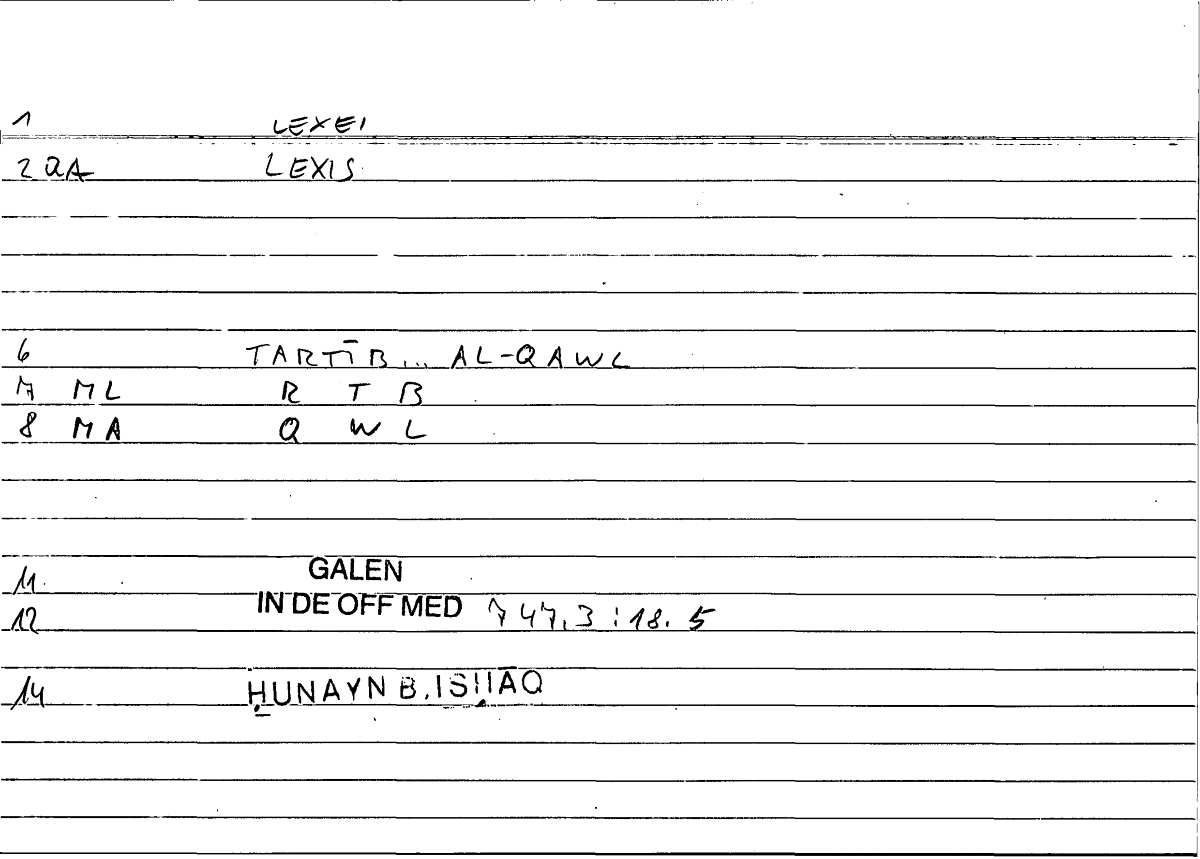 1 LEXEI
2 QA LEXIS
6 TARTĪB... AL-QAWL
7 ML R T B
8 MA Q W L
11 GALEN
12 IN DE OFF MED 747,3 : 18. 5
14 ḤUNAYN B. ISḤĀQ